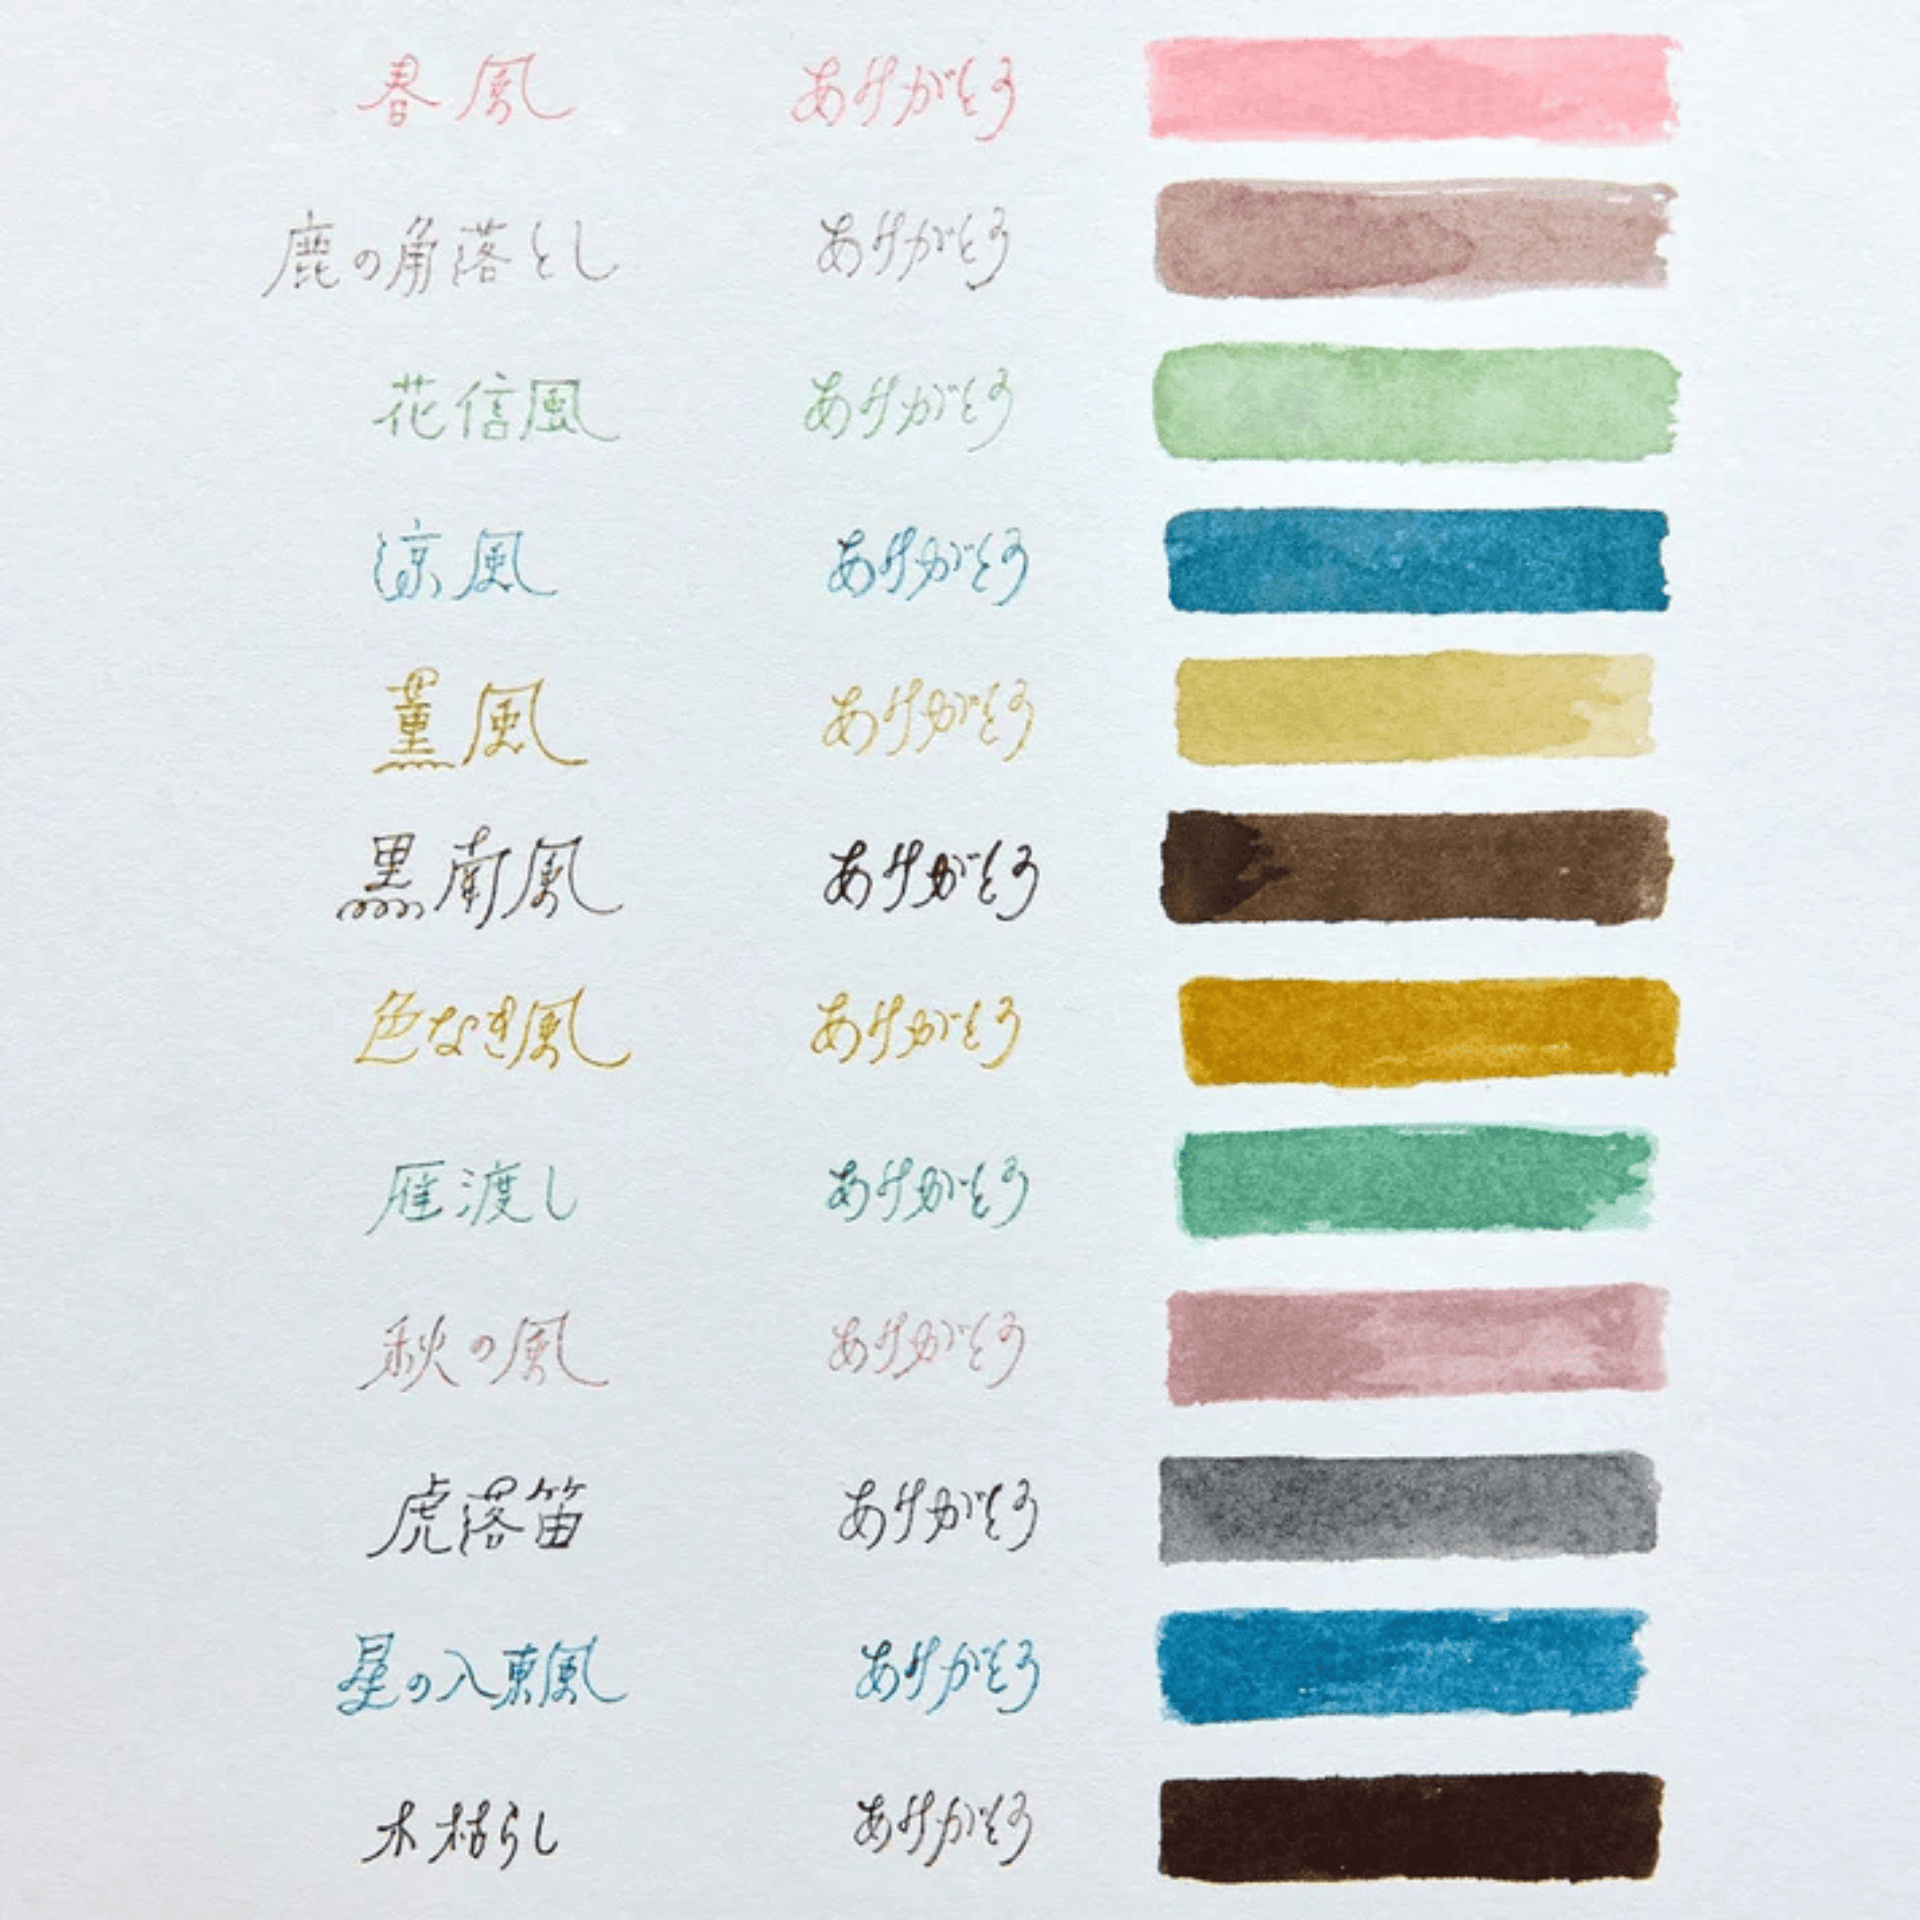 春風 ありがとう
鹿の角落とし ありがとう
花信風 ありがとう
涼風 ありがとう
薫風 ありがとう
黒南風 ありがとう
色なき風 ありがとう
雁渡し ありがとう
秋の風 ありがとう
虎落笛 ありがとう
星の入東風 ありがとう
木枯らし ありがとう